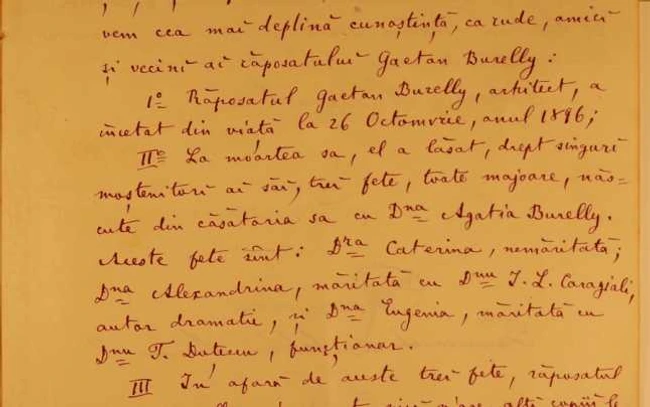 vem cea mai deplină cunoștință, ca rude, amici
și vecini ai răposatului Gaetan Burelly:
I° Răposatul Gaetan Burelly, arhitect, a
încetat din viață la 26 Octomvrie, anul 1896;
II° La moartea sa, el a lăsat, drept singuri
moștenitori ai săi, trei fete, toate majore, năs-
cute din căsătoria sa cu Dna Agatia Burelly.
Aceste fete sînt: Dra Caterina, nemăritată;
Dna Alexandrina, măritată cu Dnu I. L. Caragiali,
autor dramatic, și Dna Eugenia, măritată cu
Dnu T. Dutescu, funcționar.
III În afară de aceste trei fete, răposatul
alți copii le